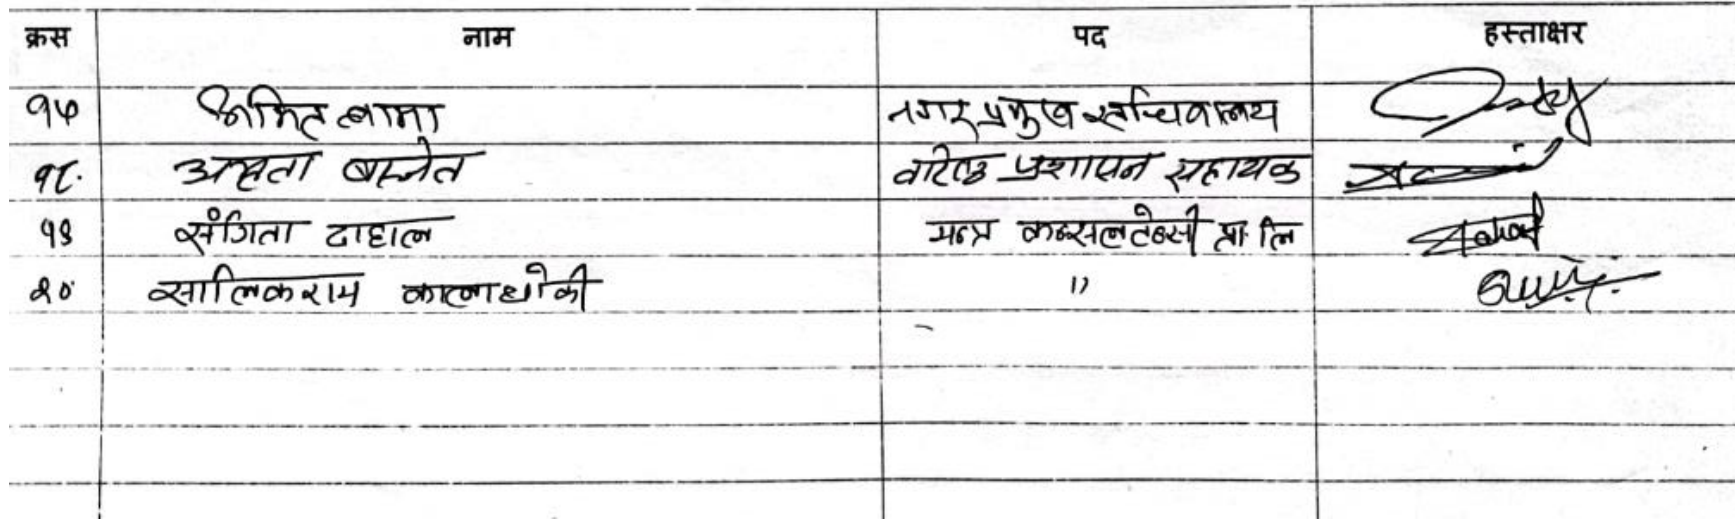 क्रस नाम पद हस्ताक्षर
१७ अमित लामा नगर प्रमुख सचिवालय
१८. बस्नेत वरिष्ठ प्रशासन सहायक
१९ संगिता दाहाल कन्सलटेन्सी प्रा. लि
२० सालिकराम कालाथोकी "